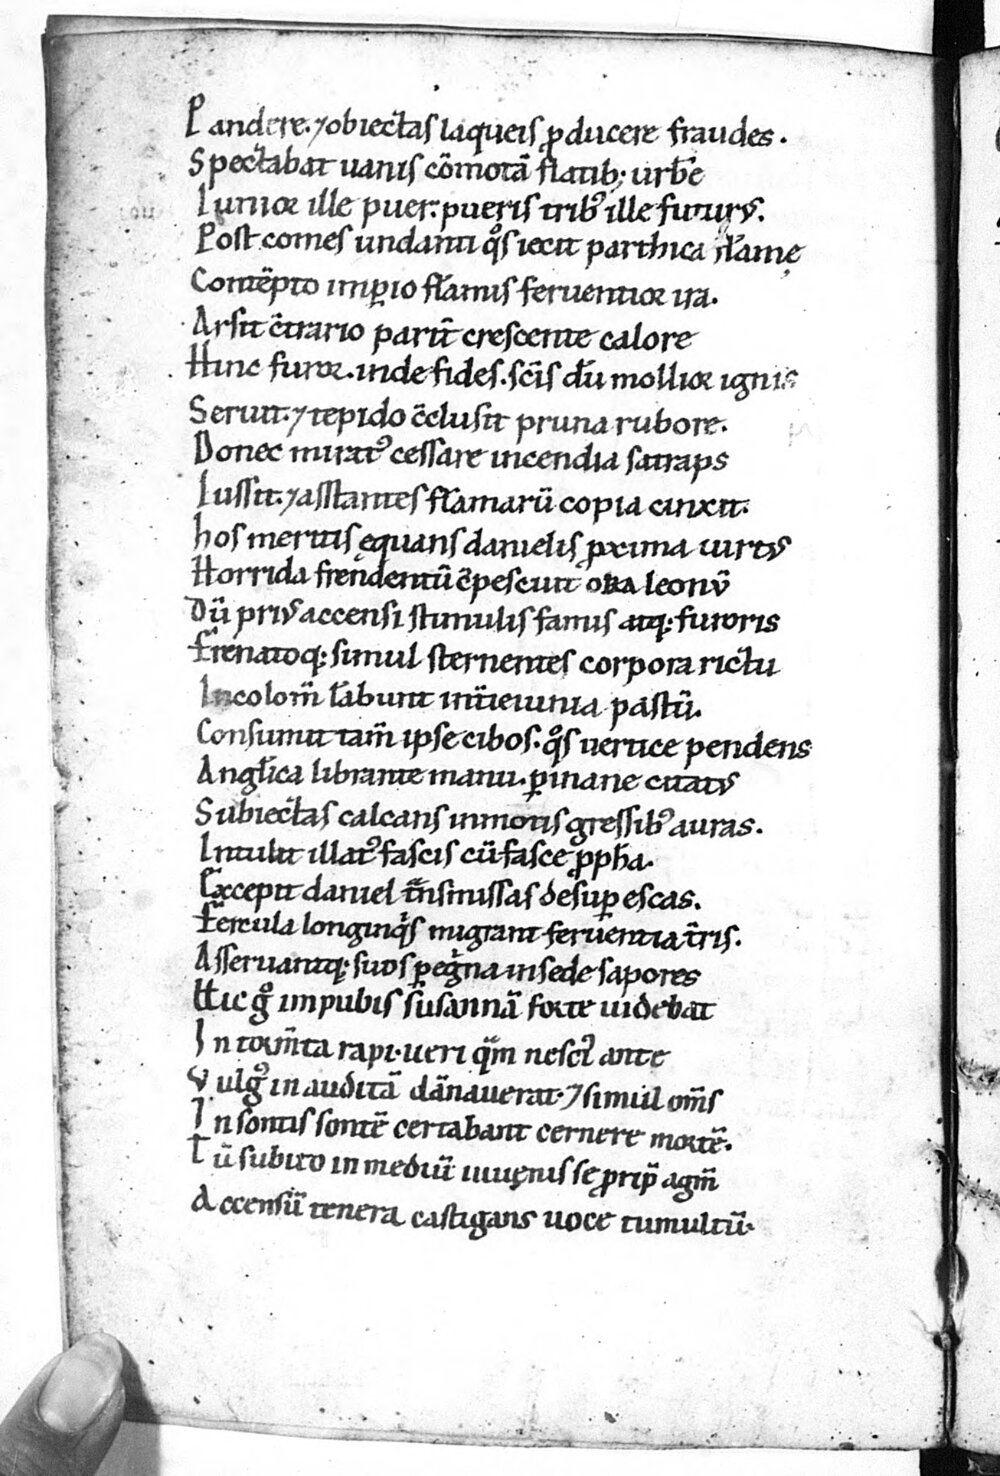 Pandere. ⁊ obiectas laqueis ꝓducere fraudes.
Spectabat uanis cōmotā flatib; urbē
Iunior ille puer: pueris tribꝰ ille futurꝰ.
Post comes undanti qͦs iecit parthica flāmę
Contēpto imꝑio flāmis feruentior ira.
Arsit c̄trario pariT̄ crescente calore
Hinc furor. inde fides. sc̄is dū mollior ignis
Seruit. ⁊ tepido c̄clusit pruna rubore.
Donec miratꝰ cessare incendia satraps
Iussit. ⁊ astantes flāmarū copia cinxit.
hos meritis ęquans danielis ꝓxima uirtꝰ
Horrida frendentū c̄pescuit ora leonū
Dū priꝰ accensi stimulis famis atq: furoris
Frenatoq: simul sternentes corpora rictu
Incolom̄ l̄abunt int̄ ieiunia pastū.
Consumit tam̄ ipse cibos. qͦs uertice pendens
Angl̄ica librante manu. ꝑ inane citatꝰ
Subiectas calcans inmotis gressibꝰ auras.
Intulit illatꝰ fascis cū fasce ꝓph̄a.
Excepit daniel t̄nsmissas desuꝑ escas.
Fercula longinqͥs migrant feruentia t̄ris.
Asseruantq: suos ꝑegͥna in sede sapores
Hic gͦ impubis susannā forte uidebat
In torm̄ta rapi. ueri qͣm nescꝰ ante
Vulgꝰ inauditā dānauerat. ⁊ simul om̄s
Insontis sontē certabant cernere mortē.
Tū subito in mediū iuuenis se ꝓripͥ agm̄
Accensū tenera castigans uoce tumultū.